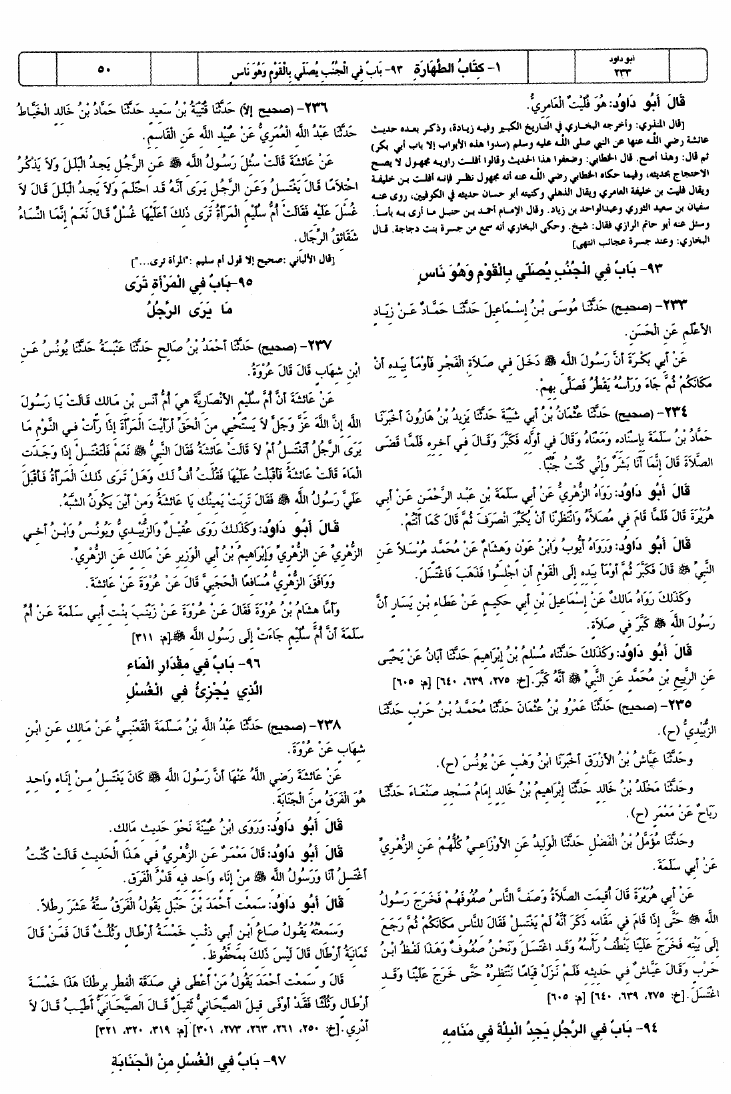 ابو داود
٢٣٣
١- كِتَابُ الطَّهَارَةِ ٩٣- بَابٌ فِي الْجُنُبِ يُصَلِّي بِالْقَوْمِ وَهُوَ نَاسٍ
٥٠
قَالَ أَبُو دَاوُدَ: هُوَ فُلَيْتُ الْعَامِرِيُّ.
[قال المنذري: وأخرجه البخاري في التاريخ الكبير وفيه زيادة، وذكر بعده حديث
عائشة رضي الله عنها عن النبي صلى الله عليه وسلم (سدوا هذه الأبواب إلا باب أبي بكر)
ثم قال: وهذا أصح. قال الخطابي: وضعفوا هذا الحديث وقالوا أفلت راويه مجهول لا يصح
الاحتجاج بحديثه، وفيما حكاه الخطابي رضي الله عنه أنه مجهول نظر فإنه أفلت بن خليفة
ويقال فليت بن خليفة العامري ويقال الذهلي وكنيته أبو حسان حديثه في الكوفيين، روى عنه
سفيان بن سعيد الثوري وعبدالواحد بن زياد. وقال الإمام أحمد بن حنبل ما أرى به بأساً.
وسئل عنه أبو حاتم الرازي فقال: شيخ. وحكى البخاري أنه سمع من جسرة بنت دجاجة. قال
البخاري: وعند جسرة عجائب انتهى]
٩٣- بَابٌ فِي الْجُنُبِ يُصَلِّي بِالْقَوْمِ وَهُوَ نَاسٍ
٢٣٣- (صحيح) حَدَّثَنَا مُوسَى بْنُ إِسْمَاعِيلَ حَدَّثَنَا حَمَّادٌ عَنْ زِيَادٍ
الأَعْلَمِ عَنِ الْحَسَنِ.
عَنْ أَبِي بَكْرَةَ أَنَّ رَسُولَ اللَّهِ ﷺ دَخَلَ فِي صَلاَةِ الْفَجْرِ فَأَوْمَأَ بِيَدِهِ أَنْ
مَكَانَكُمْ ثُمَّ جَاءَ وَرَأْسُهُ يَقْطُرُ فَصَلَّى بِهِمْ.
٢٣٤- (صحيح) حَدَّثَنَا عُثْمَانُ بْنُ أَبِي شَيْبَةَ حَدَّثَنَا يَزِيدُ بْنُ هَارُونَ أَخْبَرَنَا
حَمَّادُ بْنُ سَلَمَةَ بِإِسْنَادِهِ وَمَعْنَاهُ وَقَالَ فِي أَوَّلِهِ فَكَبَّرَ وَقَالَ فِي آخِرِهِ فَلَمَّا قَضَى
الصَّلاَةَ قَالَ إِنَّمَا أَنَا بَشَرٌ وَإِنِّي كُنْتُ جُنُبًا.
قَالَ أَبُو دَاوُدَ: رَوَاهُ الزُّهْرِيُّ عَنْ أَبِي سَلَمَةَ بْنِ عَبْدِ الرَّحْمَنِ عَنْ أَبِي
هُرَيْرَةَ قَالَ فَلَمَّا قَامَ فِي مُصَلاَّهُ وَانْتَظَرْنَا أَنْ يُكَبِّرَ انْصَرَفَ ثُمَّ قَالَ كَمَا أَنْتُمْ.
قَالَ أَبُو دَاوُدَ: وَرَوَاهُ أَيُّوبُ وَابْنُ عَوْنٍ وَهِشَامٌ عَنْ مُحَمَّدٍ مُرْسَلاً عَنِ
النَّبِيِّ ﷺ قَالَ فَكَبَّرَ ثُمَّ أَوْمَأَ بِيَدِهِ إِلَى الْقَوْمِ أَنِ اجْلِسُوا فَذَهَبَ فَاغْتَسَلَ.
وَكَذَلِكَ رَوَاهُ مَالِكٌ عَنْ إِسْمَاعِيلَ بْنِ أَبِي حَكِيمٍ عَنْ عَطَاءِ بْنِ يَسَارٍ أَنَّ
رَسُولَ اللَّهِ ﷺ كَبَّرَ فِي صَلاَةٍ.
قَالَ أَبُو دَاوُدَ: وَكَذَلِكَ حَدَّثَنَاه مُسْلِمُ بْنُ إِبْرَاهِيمَ حَدَّثَنَا أَبَانُ عَنْ يَحْيَى
عَنِ الرَّبِيعِ بْنِ مُحَمَّدٍ عَنِ النَّبِيِّ ﷺ أَنَّهُ كَبَّرَ.[خ: ٢٧٥، ٦٣٩، ٦٤٠] [م: ٦٠٥]
٢٣٥- (صحيح) حَدَّثَنَا عَمْرُو بْنُ عُثْمَانَ حَدَّثَنَا مُحَمَّدُ بْنُ حَرْبٍ حَدَّثَنَا
الزُّبَيْدِيُّ (ح).
وحَدَّثَنَا عَيَّاشُ بْنُ الأَزْرَقِ أَخْبَرَنَا ابْنُ وَهْبٍ عَنْ يُونُسَ (ح).
وحَدَّثَنَا مَخْلَدُ بْنُ خَالِدٍ حَدَّثَنَا إِبْرَاهِيمُ بْنُ خَالِدٍ إِمَامُ مَسْجِدِ صَنْعَاءَ حَدَّثَنَا
رَبَاحٌ عَنْ مَعْمَرٍ (ح).
وحَدَّثَنَا مُؤَمَّلُ بْنُ الْفَضْلِ حَدَّثَنَا الْوَلِيدُ عَنِ الأَوْزَاعِيِّ كُلُّهُمْ عَنِ الزُّهْرِيِّ
عَنْ أَبِي سَلَمَةَ.
عَنْ أَبِي هُرَيْرَةَ قَالَ أُقِيمَتِ الصَّلاَةُ وَصَفَّ النَّاسُ صُفُوفَهُمْ فَخَرَجَ رَسُولُ
اللَّهِ ﷺ حَتَّى إِذَا قَامَ فِي مَقَامِهِ ذَكَرَ أَنَّهُ لَمْ يَغْتَسِلْ فَقَالَ لِلنَّاسِ مَكَانَكُمْ ثُمَّ رَجَعَ
إِلَى بَيْتِهِ فَخَرَجَ عَلَيْنَا يَنْطُفُ رَأْسُهُ وَقَدِ اغْتَسَلَ وَنَحْنُ صُفُوفٌ وَهَذَا لَفْظُ ابْنُ
حَرْبٍ وَقَالَ عَيَّاشٌ فِي حَدِيثِهِ فَلَمْ نَزَلْ قِيَامًا نَنْتَظِرُهُ حَتَّى خَرَجَ عَلَيْنَا وَقَدِ
اغْتَسَلَ.[خ: ٢٧٥، ٦٣٩، ٦٤٠] [م: ٦٠٥]
٩٤- بَابٌ فِي الرَّجُلِ يَجِدُ الْبِلَّةَ فِي مَنَامِهِ
٢٣٦- (صحيح إلا) حَدَّثَنَا قُتَيْبَةُ بْنُ سَعِيدٍ حَدَّثَنَا حَمَّادُ بْنُ خَالِدٍ الْخَيَّاطُ
حَدَّثَنَا عَبْدُ اللَّهِ الْعُمَرِيُّ عَنْ عُبَيْدِ اللَّهِ عَنِ الْقَاسِمِ.
عَنْ عَائِشَةَ قَالَتْ سُئِلَ رَسُولُ اللَّهِ ﷺ عَنِ الرَّجُلِ يَجِدُ الْبَلَلَ وَلاَ يَذْكُرُ
احْتِلاَمًا قَالَ يَغْتَسِلُ وَعَنِ الرَّجُلِ يَرَى أَنَّهُ قَدِ احْتَلَمَ وَلاَ يَجِدُ الْبَلَلَ قَالَ لاَ
غُسْلَ عَلَيْهِ فَقَالَتْ أُمُّ سُلَيْمٍ الْمَرْأَةُ تَرَى ذَلِكَ أَعَلَيْهَا غُسْلٌ قَالَ نَعَمْ إِنَّمَا النِّسَاءُ
شَقَائِقُ الرِّجَالِ.
[قال الألباني :صحيح إلا قول أم سليم :"المرأة ترى..."]
٩٥- بَابٌ فِي الْمَرْأَةِ تَرَى
مَا يَرَى الرَّجُلُ
٢٣٧- (صحيح) حَدَّثَنَا أَحْمَدُ بْنُ صَالِحٍ حَدَّثَنَا عَنْبَسَةُ حَدَّثَنَا يُونُسُ عَنِ
ابْنِ شِهَابٍ قَالَ قَالَ عُرْوَةُ.
عَنْ عَائِشَةَ أَنَّ أُمَّ سُلَيْمٍ الأَنْصَارِيَّةَ هِيَ أُمُّ أَنَسِ بْنِ مَالِكٍ قَالَتْ يَا رَسُولَ
اللَّهِ إِنَّ اللَّهَ عَزَّ وَجَلَّ لاَ يَسْتَحْيِي مِنَ الْحَقِّ أَرَأَيْتَ الْمَرْأَةَ إِذَا رَأَتْ فِي النَّوْمِ مَا
يَرَى الرَّجُلُ أَتَغْتَسِلُ أَمْ لاَ قَالَتْ عَائِشَةُ فَقَالَ النَّبِيُّ ﷺ نَعَمْ فَلْتَغْتَسِلْ إِذَا وَجَدَتِ
الْمَاءَ قَالَتْ عَائِشَةُ فَأَقْبَلْتُ عَلَيْهَا فَقُلْتُ أُفٍّ لَكِ وَهَلْ تَرَى ذَلِكَ الْمَرْأَةُ فَأَقْبَلَ
عَلَيَّ رَسُولُ اللَّهِ ﷺ فَقَالَ تَرِبَتْ يَمِينُكِ يَا عَائِشَةُ وَمِنْ أَيْنَ يَكُونُ الشَّبَهُ.
قَالَ أَبُو دَاوُدَ: وَكَذَلِكَ رَوَى عُقَيْلٌ وَالزُّبَيْدِيُّ وَيُونُسُ وَابْنُ أَخِي
الزُّهْرِيِّ عَنِ الزُّهْرِيِّ وَإِبْرَاهِيمُ بْنُ أَبِي الْوَزِيرِ عَنْ مَالِكٍ عَنِ الزُّهْرِيِّ.
وَوَافَقَ الزُّهْرِيُّ مُسَافِعًا الْحَجَبِيَّ قَالَ عَنْ عُرْوَةَ عَنْ عَائِشَةَ.
وَأَمَّا هِشَامُ بْنُ عُرْوَةَ فَقَالَ عَنْ عُرْوَةَ عَنْ زَيْنَبَ بِنْتِ أَبِي سَلَمَةَ عَنْ أُمِّ
سَلَمَةَ أَنَّ أُمَّ سُلَيْمٍ جَاءَتْ إِلَى رَسُولِ اللَّهِ ﷺ.[م: ٣١١]
٩٦- بَابٌ فِي مِقْدَارِ الْمَاءِ
الَّذِي يُجْزِئُ فِي الْغُسْلِ
٢٣٨- (صحيح) حَدَّثَنَا عَبْدُ اللَّهِ بْنُ مَسْلَمَةَ الْقَعْنَبِيُّ عَنْ مَالِكٍ عَنِ ابْنِ
شِهَابٍ عَنْ عُرْوَةَ.
عَنْ عَائِشَةَ رَضِيَ اللَّهُ عَنْهَا أَنَّ رَسُولَ اللَّهِ ﷺ كَانَ يَغْتَسِلُ مِنْ إِنَاءٍ وَاحِدٍ
هُوَ الْفَرَقُ مِنَ الْجَنَابَةِ.
قَالَ أَبُو دَاوُدَ: وَرَوَى ابْنُ عُيَيْنَةَ نَحْوَ حَدِيثِ مَالِكٍ.
قَالَ أَبُو دَاوُدَ: قَالَ مَعْمَرٌ عَنِ الزُّهْرِيِّ فِي هَذَا الْحَدِيثِ قَالَتْ كُنْتُ
أَغْتَسِلُ أَنَا وَرَسُولُ اللَّهِ ﷺ مِنْ إِنَاءٍ وَاحِدٍ فِيهِ قَدْرُ الْفَرَقِ.
قَالَ أَبُو دَاوُدَ: سَمِعْت أَحْمَدَ بْنَ حَنْبَلٍ يَقُولُ الْفَرَقُ سِتَّةَ عَشَرَ رِطْلاً.
وَسَمِعْتُهُ يَقُولُ صَاعُ ابْنِ أَبِي ذِئْبٍ خَمْسَةُ أَرْطَالٍ وَثُلُثٌ قَالَ فَمَنْ قَالَ
ثَمَانِيَةُ أَرْطَالٍ قَالَ لَيْسَ ذَلِكَ بِمَحْفُوظٍ.
قَالَ و سَمِعْت أَحْمَدَ يَقُولُ مَنْ أَعْطَى فِي صَدَقَةِ الْفِطْرِ بِرِطْلِنَا هَذَا خَمْسَةَ
أَرْطَالٍ وَثُلُثًا فَقَدْ أَوْفَى قِيلَ الصَّيْحَانِيُّ ثَقِيلٌ قَالَ الصَّيْحَانِيُّ أَطْيَبُ قَالَ لاَ
أَدْرِي.[خ: ٢٥٠، ٢٦١، ٢٦٣، ٢٧٣، ٣٠١] [م: ٣١٩، ٣٢٠، ٣٢١]
٩٧- بَابٌ فِي الْغُسْلِ مِنَ الْجَنَابَةِ